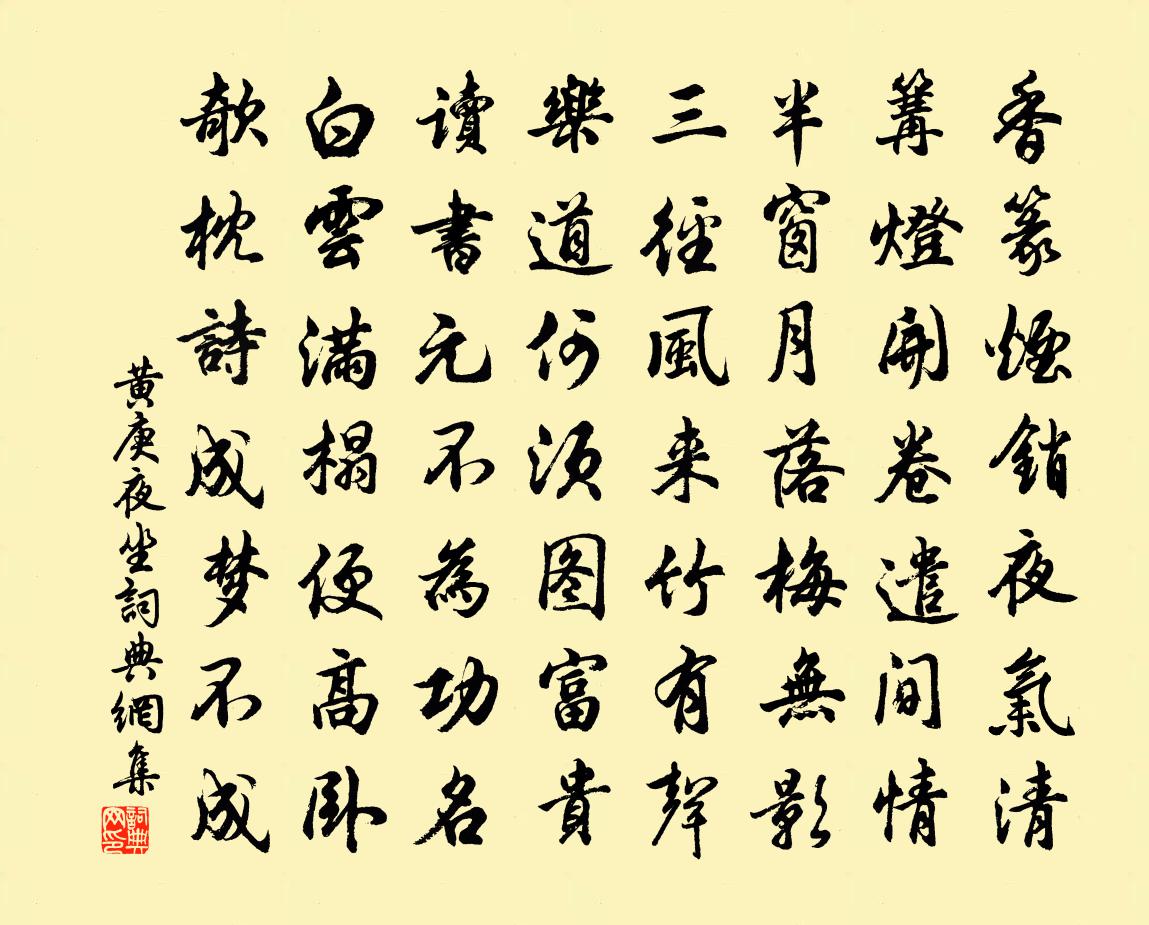 香篆煙銷夜氣清
篝燈開卷遣间情
半窗月落梅無影
三徑風来竹有聲
樂道何須图富貴
讀書元不為功名
白雲滿榻便高卧
欹枕詩成梦不成
黄庚夜坐詞典網集
詞典网印